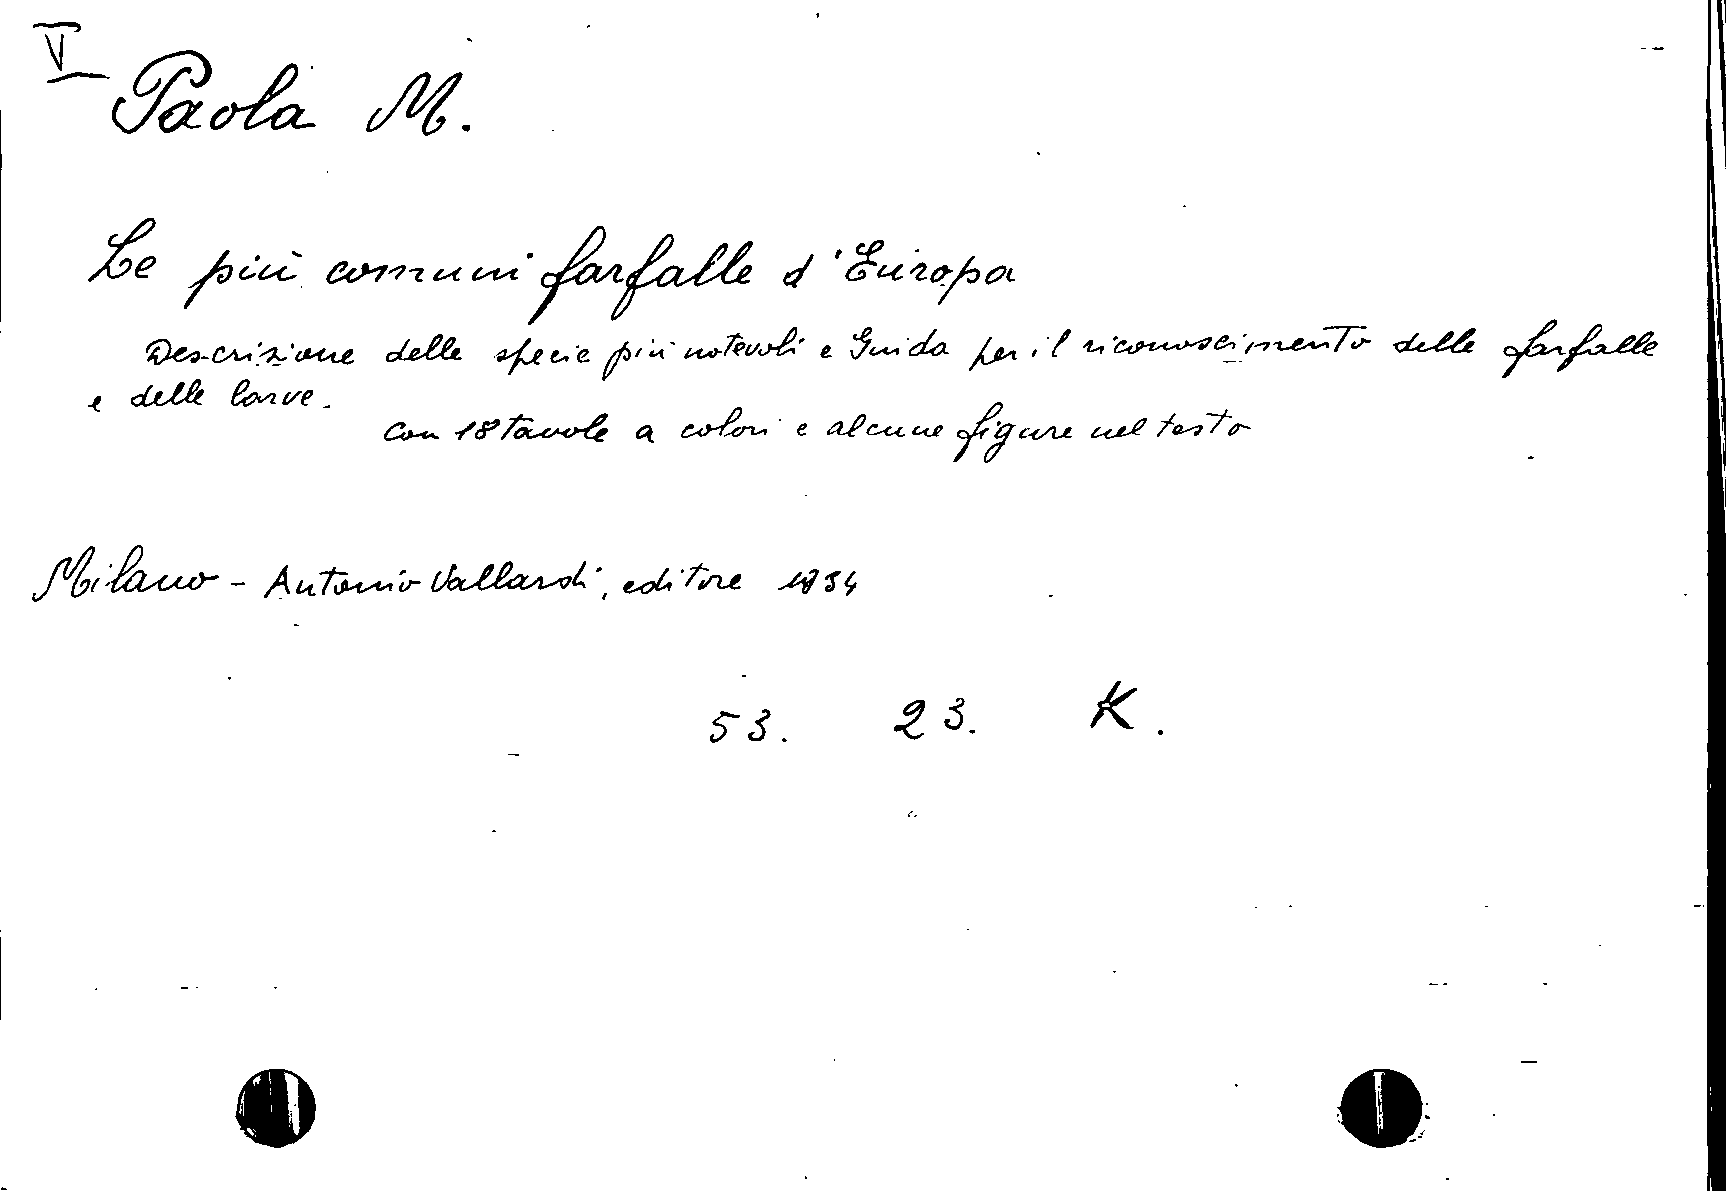 V
Paola M.
Le più comuni farfalle d'Europa
Descrizione delle specie più notevoli e Guida per il riconoscimento delle farfalle
e delle larve.
con 18 tavole a colori e alcune figure nel testo
Milano - Antonio Vallardi, editore 1934
53. 23. K.